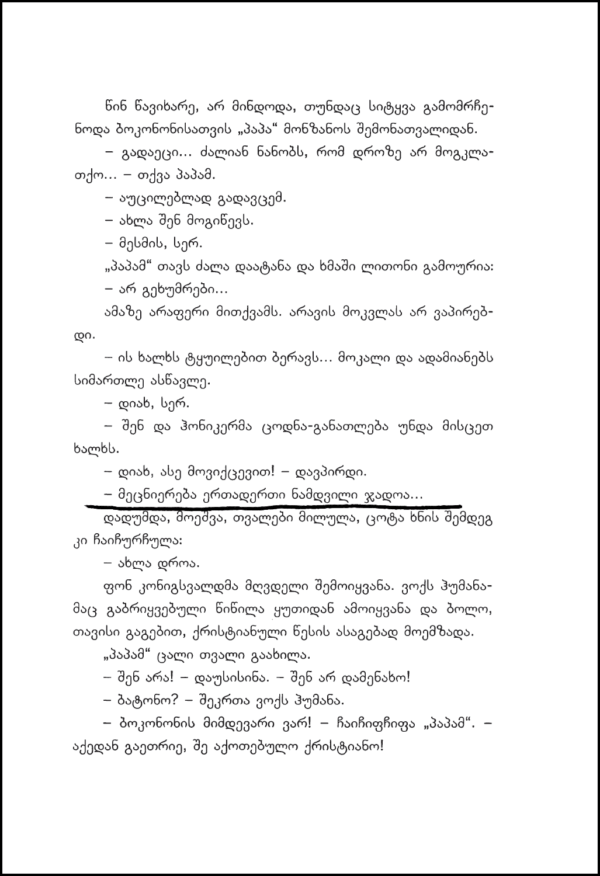 წინ წავიხარე, არ მინდოდა, თუნდაც სიტყვა გამომრჩე-
ნოდა ბოკონონისათვის „პაპა“ მონზანოს შემონათვალიდან.
– გადაეცი... ძალიან ნანობს, რომ დროზე არ მოგკლა-
თქო... – თქვა პაპამ.
– აუცილებლად გადავცემ.
– ახლა შენ მოგიწევს.
– მესმის, სერ.
„პაპამ“ თავს ძალა დაატანა და ხმაში ლითონი გამოურია:
– არ გეხუმრები...
ამაზე არაფერი მითქვამს. არავის მოკვლას არ ვაპირებ-
დი.
– ის ხალხს ტყუილებით ბერავს... მოკალი და ადამიანებს
სიმართლე ასწავლე.
– დიახ, სერ.
– შენ და ჰონიკერმა ცოდნა-განათლება უნდა მისცეთ
ხალხს.
– დიახ, ასე მოვიქცევით! – დავპირდი.
– მეცნიერება ერთადერთი ნამდვილი ჯადოა...
დადუმდა, მოეშვა, თვალები მილულა, ცოტა ხნის შემდეგ
კი ჩაიჩურჩულა:
– ახლა დროა.
ფონ კონიგსვალდმა მღვდელი შემოიყვანა. ვოქს ჰუმანა-
მაც გაბრიყვებული წიწილა ყუთიდან ამოიყვანა და ბოლო,
თავისი გაგებით, ქრისტიანული წესის ასაგებად მოემზადა.
„პაპამ“ ცალი თვალი გაახილა.
– შენ არა! – დაუსისინა. – შენ არ დამენახო!
– ბატონო? – შეკრთა ვოქს ჰუმანა.
– ბოკონონის მიმდევარი ვარ! – ჩაიჩიფჩიფა „პაპამ“. –
აქედან გაეთრიე, შე აქოთებულო ქრისტიანო!